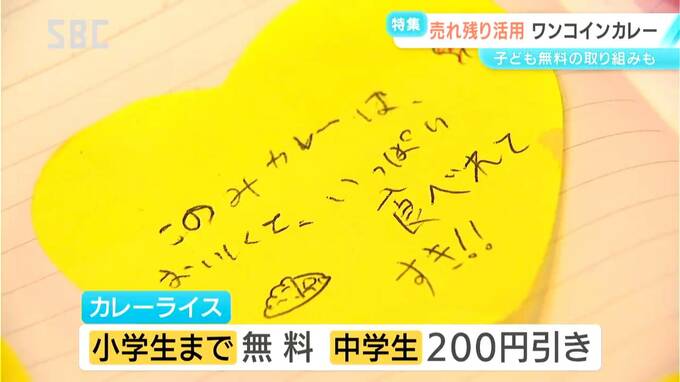 SBC
特集 売れ残り活用 ワンコインカレー
子ども無料の取り組みも
このみカレーは、
おいしくて、いっぱい
食べれて
すき!!
カレーライス
小学生まで 無料 中学生 200円引き